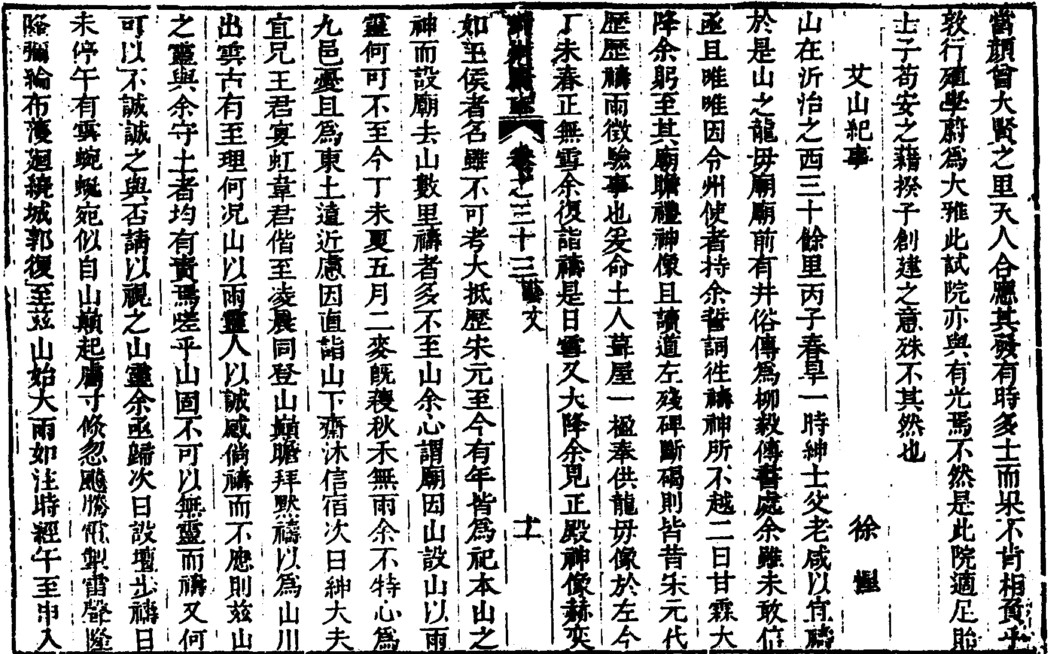 當顏曾大賢之里天人合應其發有時多士而果不肯相負乎
敦行殖學蔚爲大雅此試院亦與有光焉不然是此院適足貽
士子苟安之藉揆予創建之意殊不其然也
艾山紀事 徐惺
山在沂治之西三十餘里丙子春旱一時紳士父老咸以宜禱
於是山之龍毋廟廟前有井俗傳爲柳毅傳書處余雖未敢信
亟且唯唯因令州使者持余誓詞往禱神所不越二日甘霖大
降余躬至其廟瞻禮神像且讀道左殘碑斷碣則皆昔宋元代
歷歷禱雨徵驗事也爰命土人葺屋一楹奉供龍毋像於左今
丁未春正無雪余復詣禱是日雪又大降余見正殿神像赫奕
卷之三十三 藝文 十一
如王侯者名雖不可考大抵歷宋元至今有年皆爲祀本山之
神而設廟去山數里禱者多不至山余心謂廟因山設山以雨
靈何可不至今丁未夏五月二麥既穫秋禾無雨余不特心爲
九邑憂且爲東土遠近慮因直詣山下齋沐信宿次日紳大夫
宜兄王君宴虹韋君偕至凌晨同登山巔瞻拜默禱以爲山川
出雲古有至理何况山以雨靈人以誠感倘禱而不應則茲山
之靈與余守土者均有責焉嗟乎山固不可以無靈而禱又何
可以不誠誠之與否請以視之山靈余亟歸次日設壇步禱日
未停午有雲蜿蜒宛似自山巔起膚寸倐忽颷騰電掣雷聲隆
隆彌綸布濩廻繞城郭復至茲山始大雨如注時經午至申入